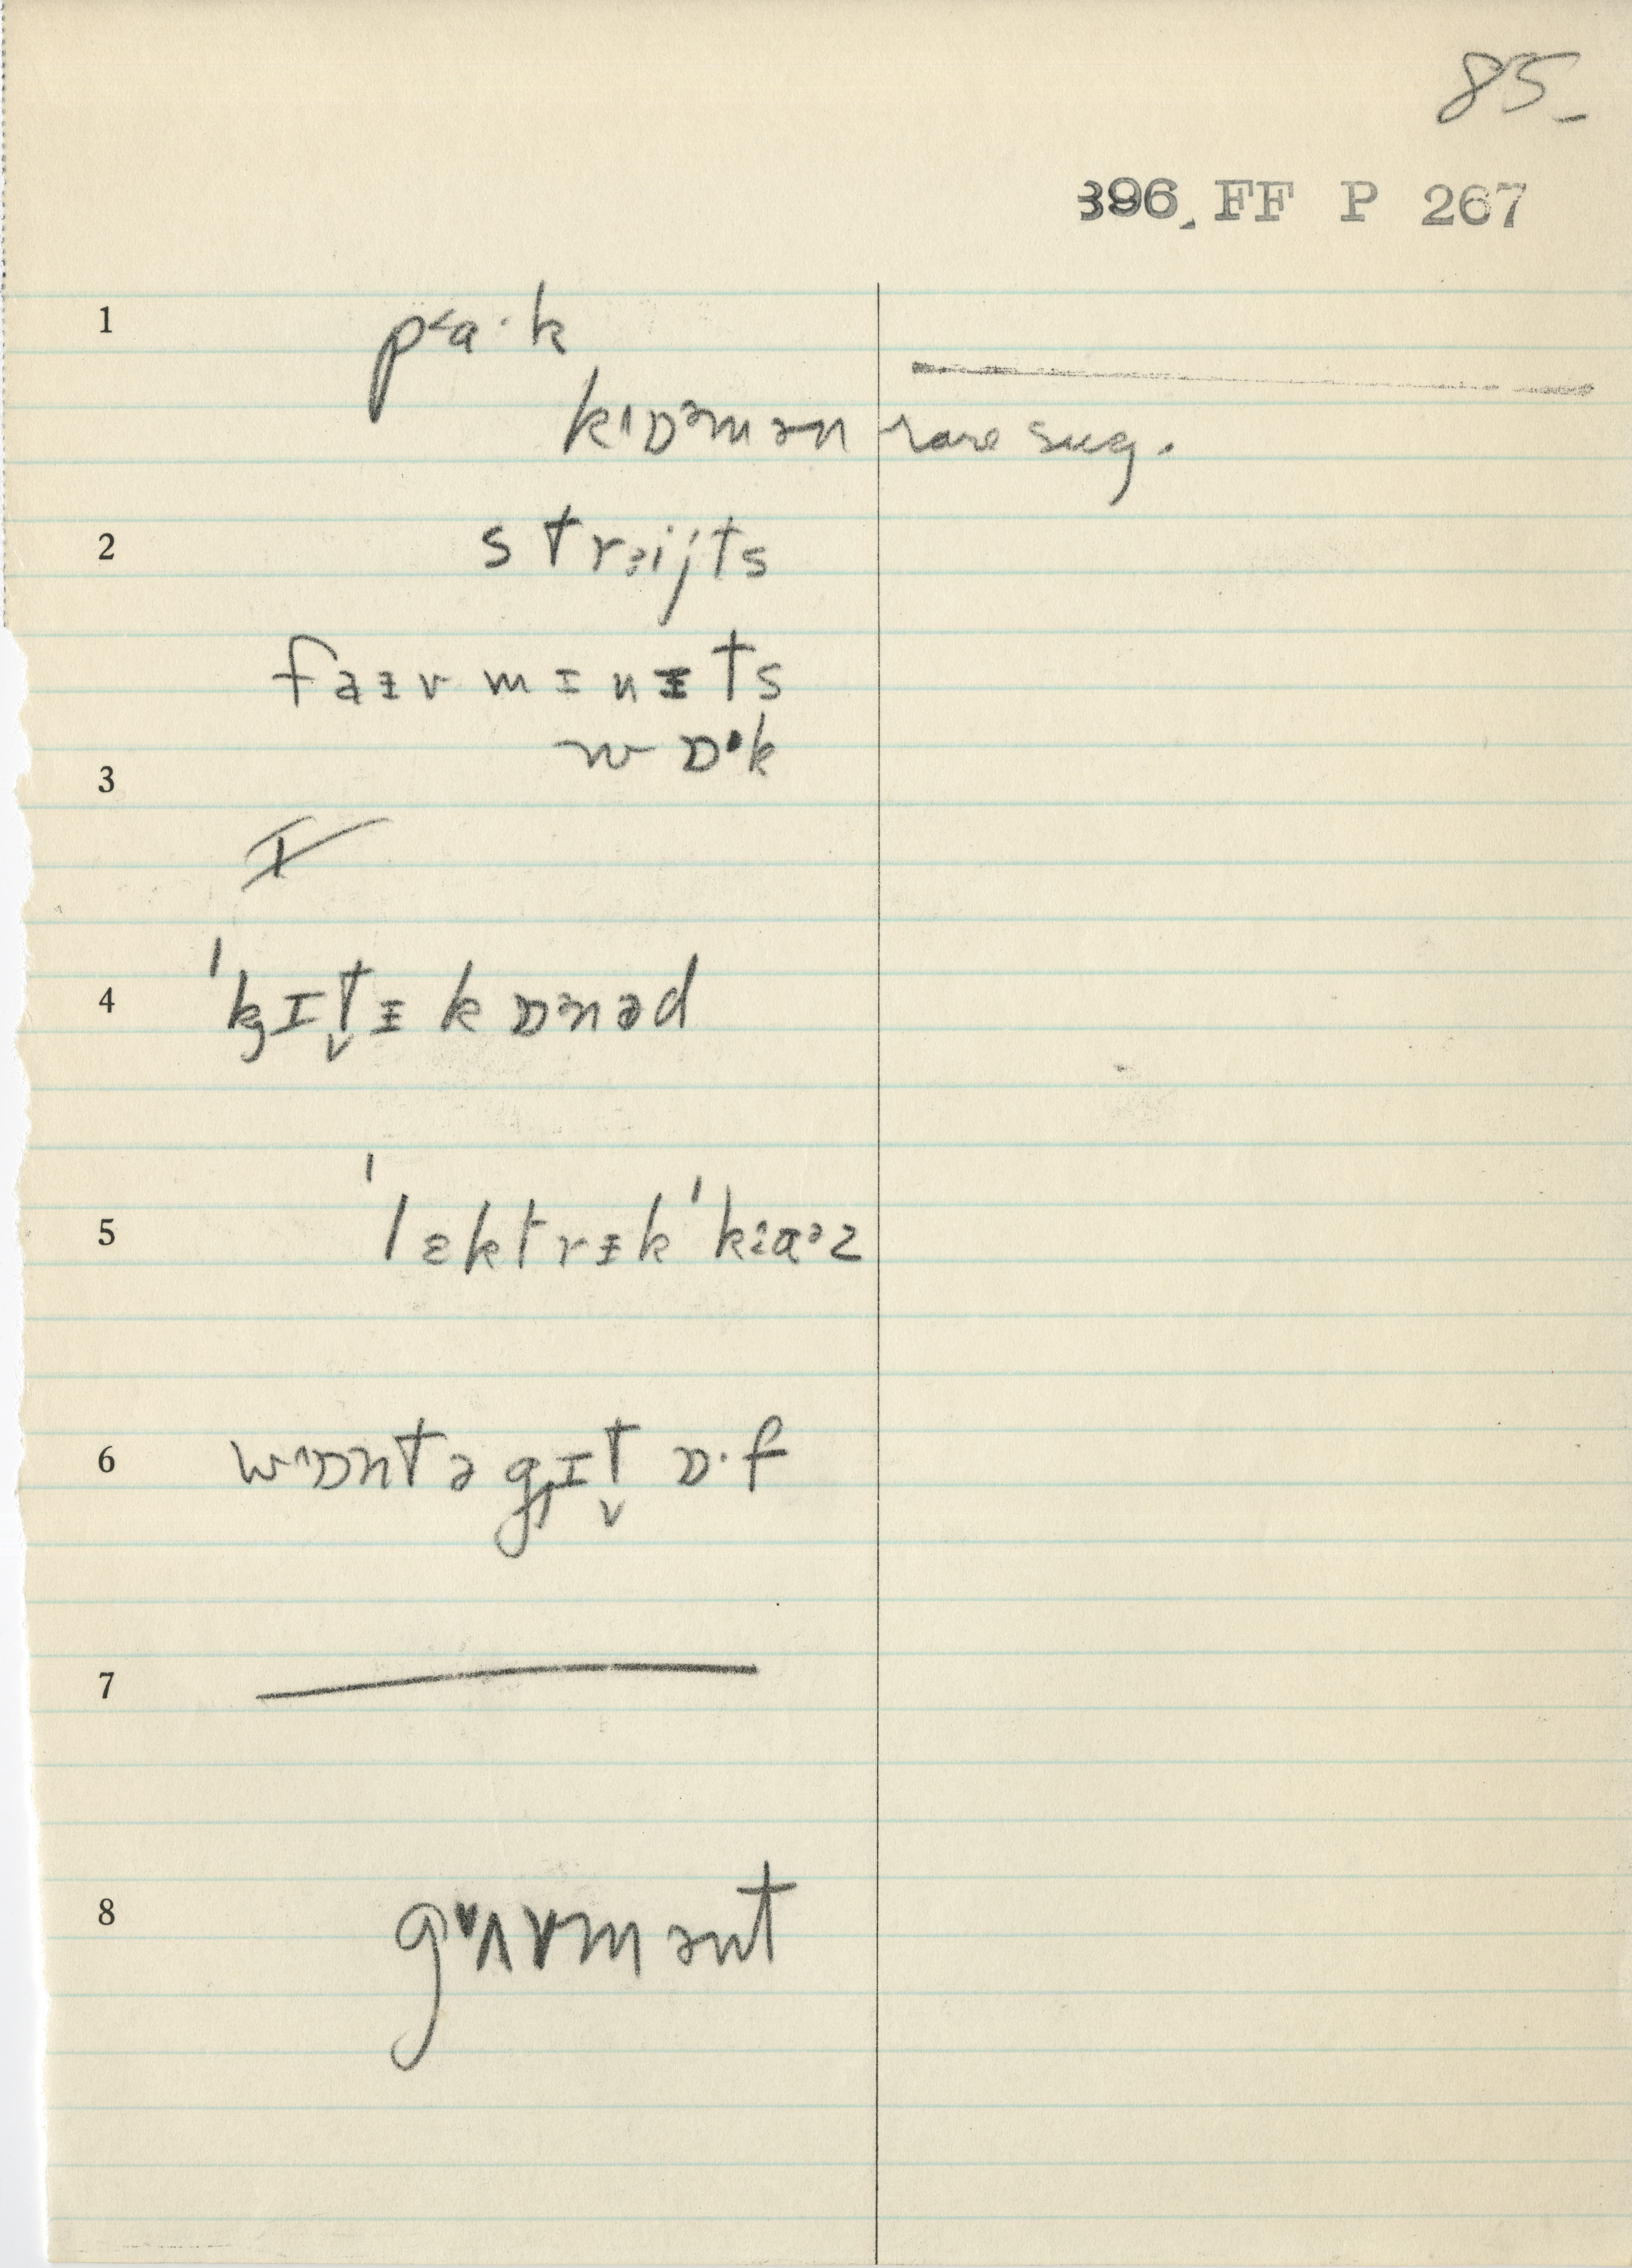 85
396. FF P 267
1
p˂a·k
kˈɒᵊmən rare sug.
2
strəijts
faɪv mɪnᵻts
wɒ·k
3
4
ˈkɪtᵻ kɒᵊnəd
5
ˈlɛktrᵻkˈkɑᵊz
6
w^ɒntə gɪt ɒ·f
7
8
gᵛʌvmənt